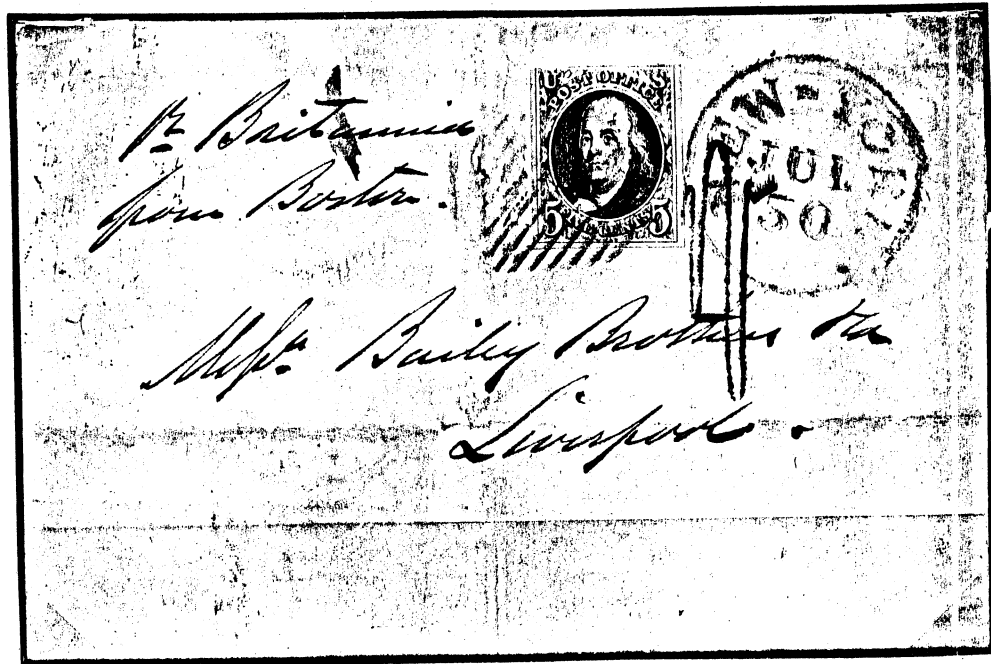 pr Britannia
from Boston.
POST OFFICE
5 5
NEW-YORK
JUL
30
Messrs. Bailey Brothers & Co
Liverpool.